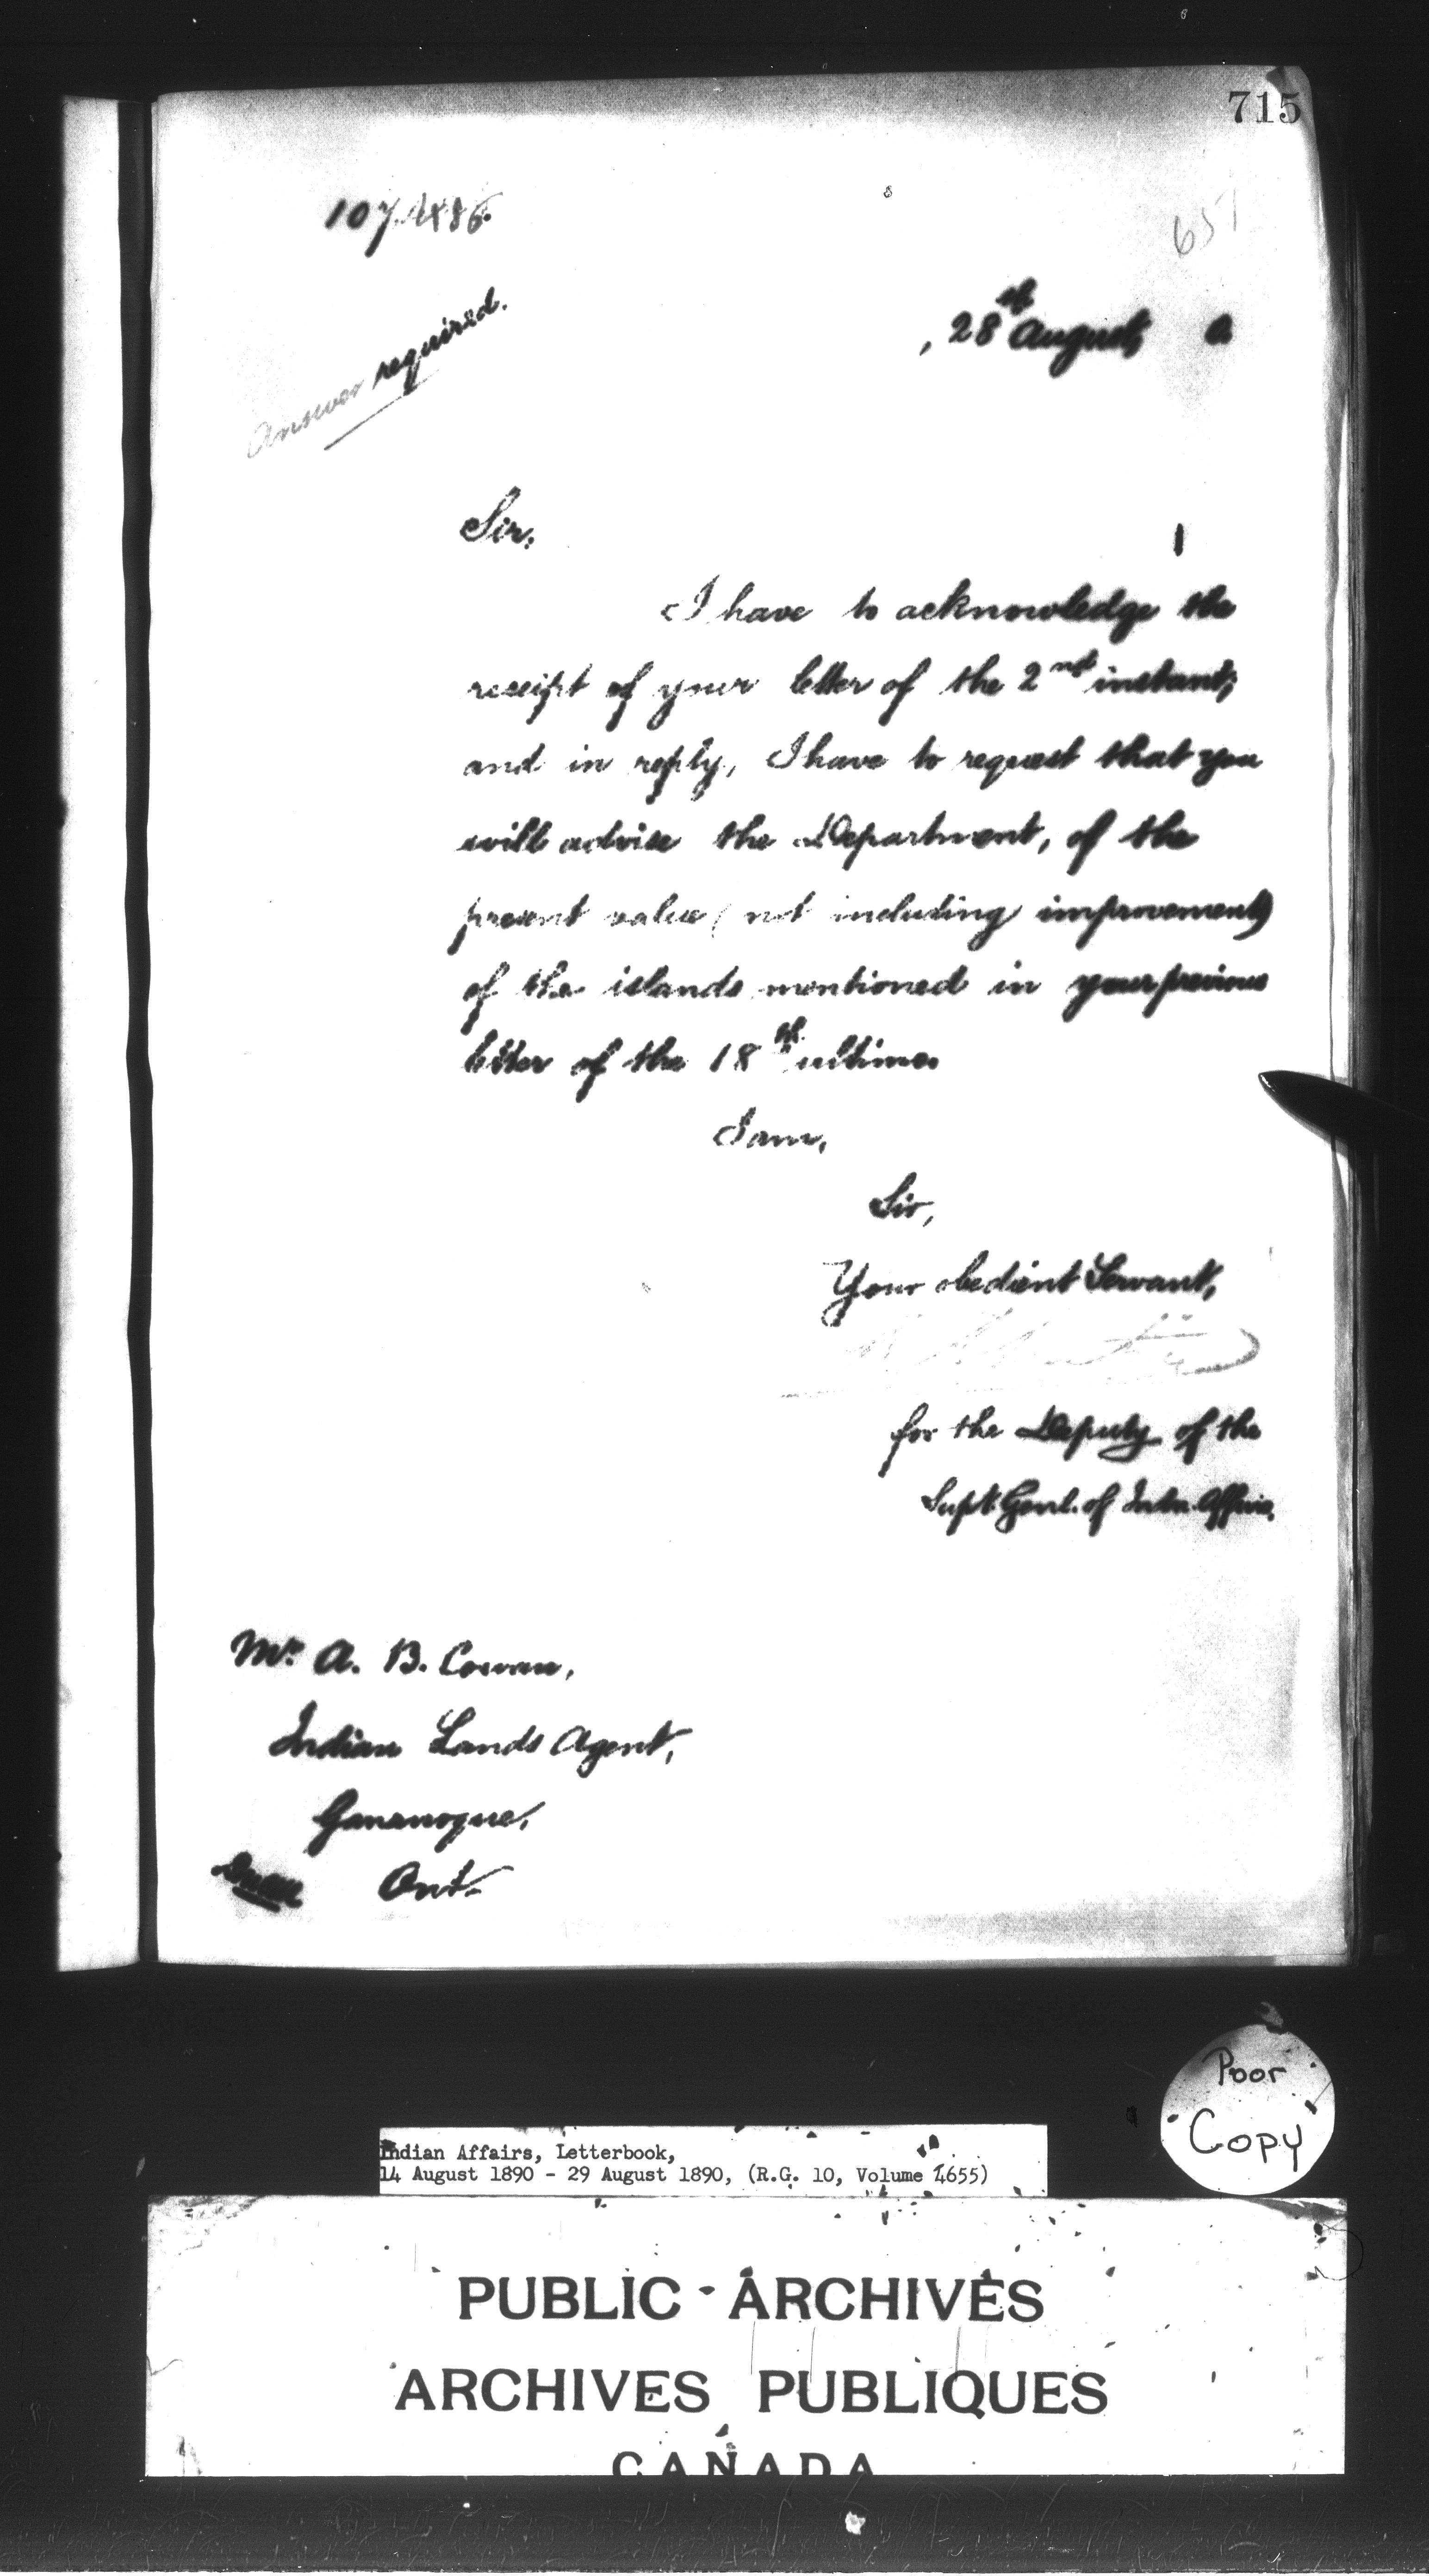 715
651
28th August,
Answer required.
Sir,
I have to acknowledge the
receipt of your letter of the 2nd instant;
and in reply, I have to request that you
will advise the Department, of the
present value (not including improvements)
of the islands mentioned in your previous
letter of the 18th ultimo.
I am,
Sir,
Your obedient Servant,
for the Deputy of the
Supt. Genl. of Indn. Affairs.
Mr. A. B. Cowan,
Indian Lands Agent,
Gananoque,
Ont.
Poor
Copy
Indian Affairs, Letterbook,
14 August 1890 - 29 August 1890, (R.G. 10, Volume 4655)
PUBLIC ARCHIVES
ARCHIVES PUBLIQUES
CANADA